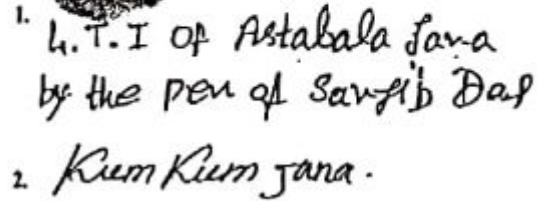 1. L.T.I of Astabala Jana
by the pen of Sanjib Das
2. Kum Kum Jana.